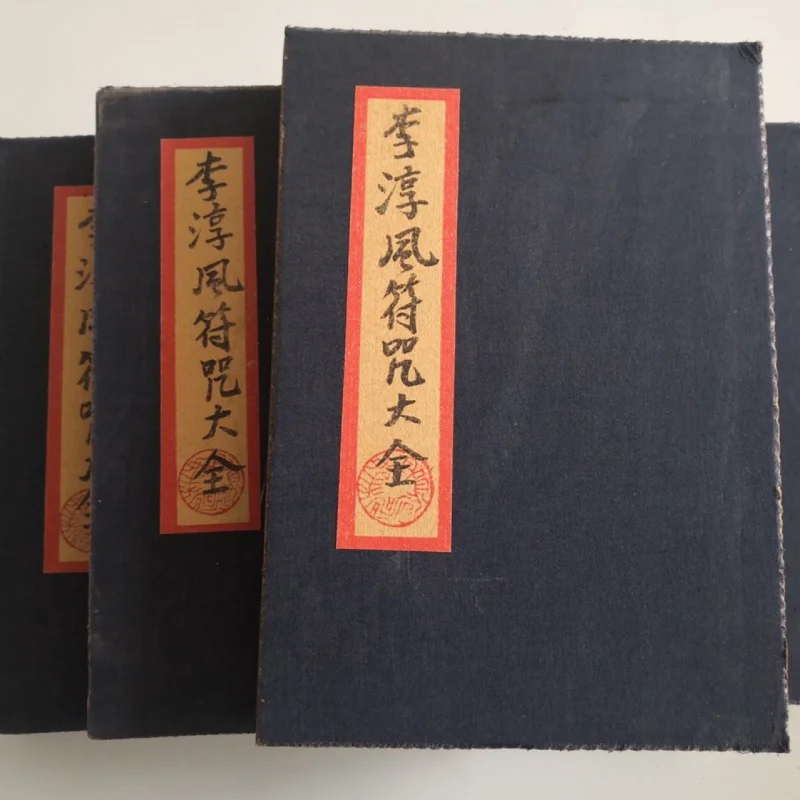 李淳风符咒大全
李淳风符咒大全